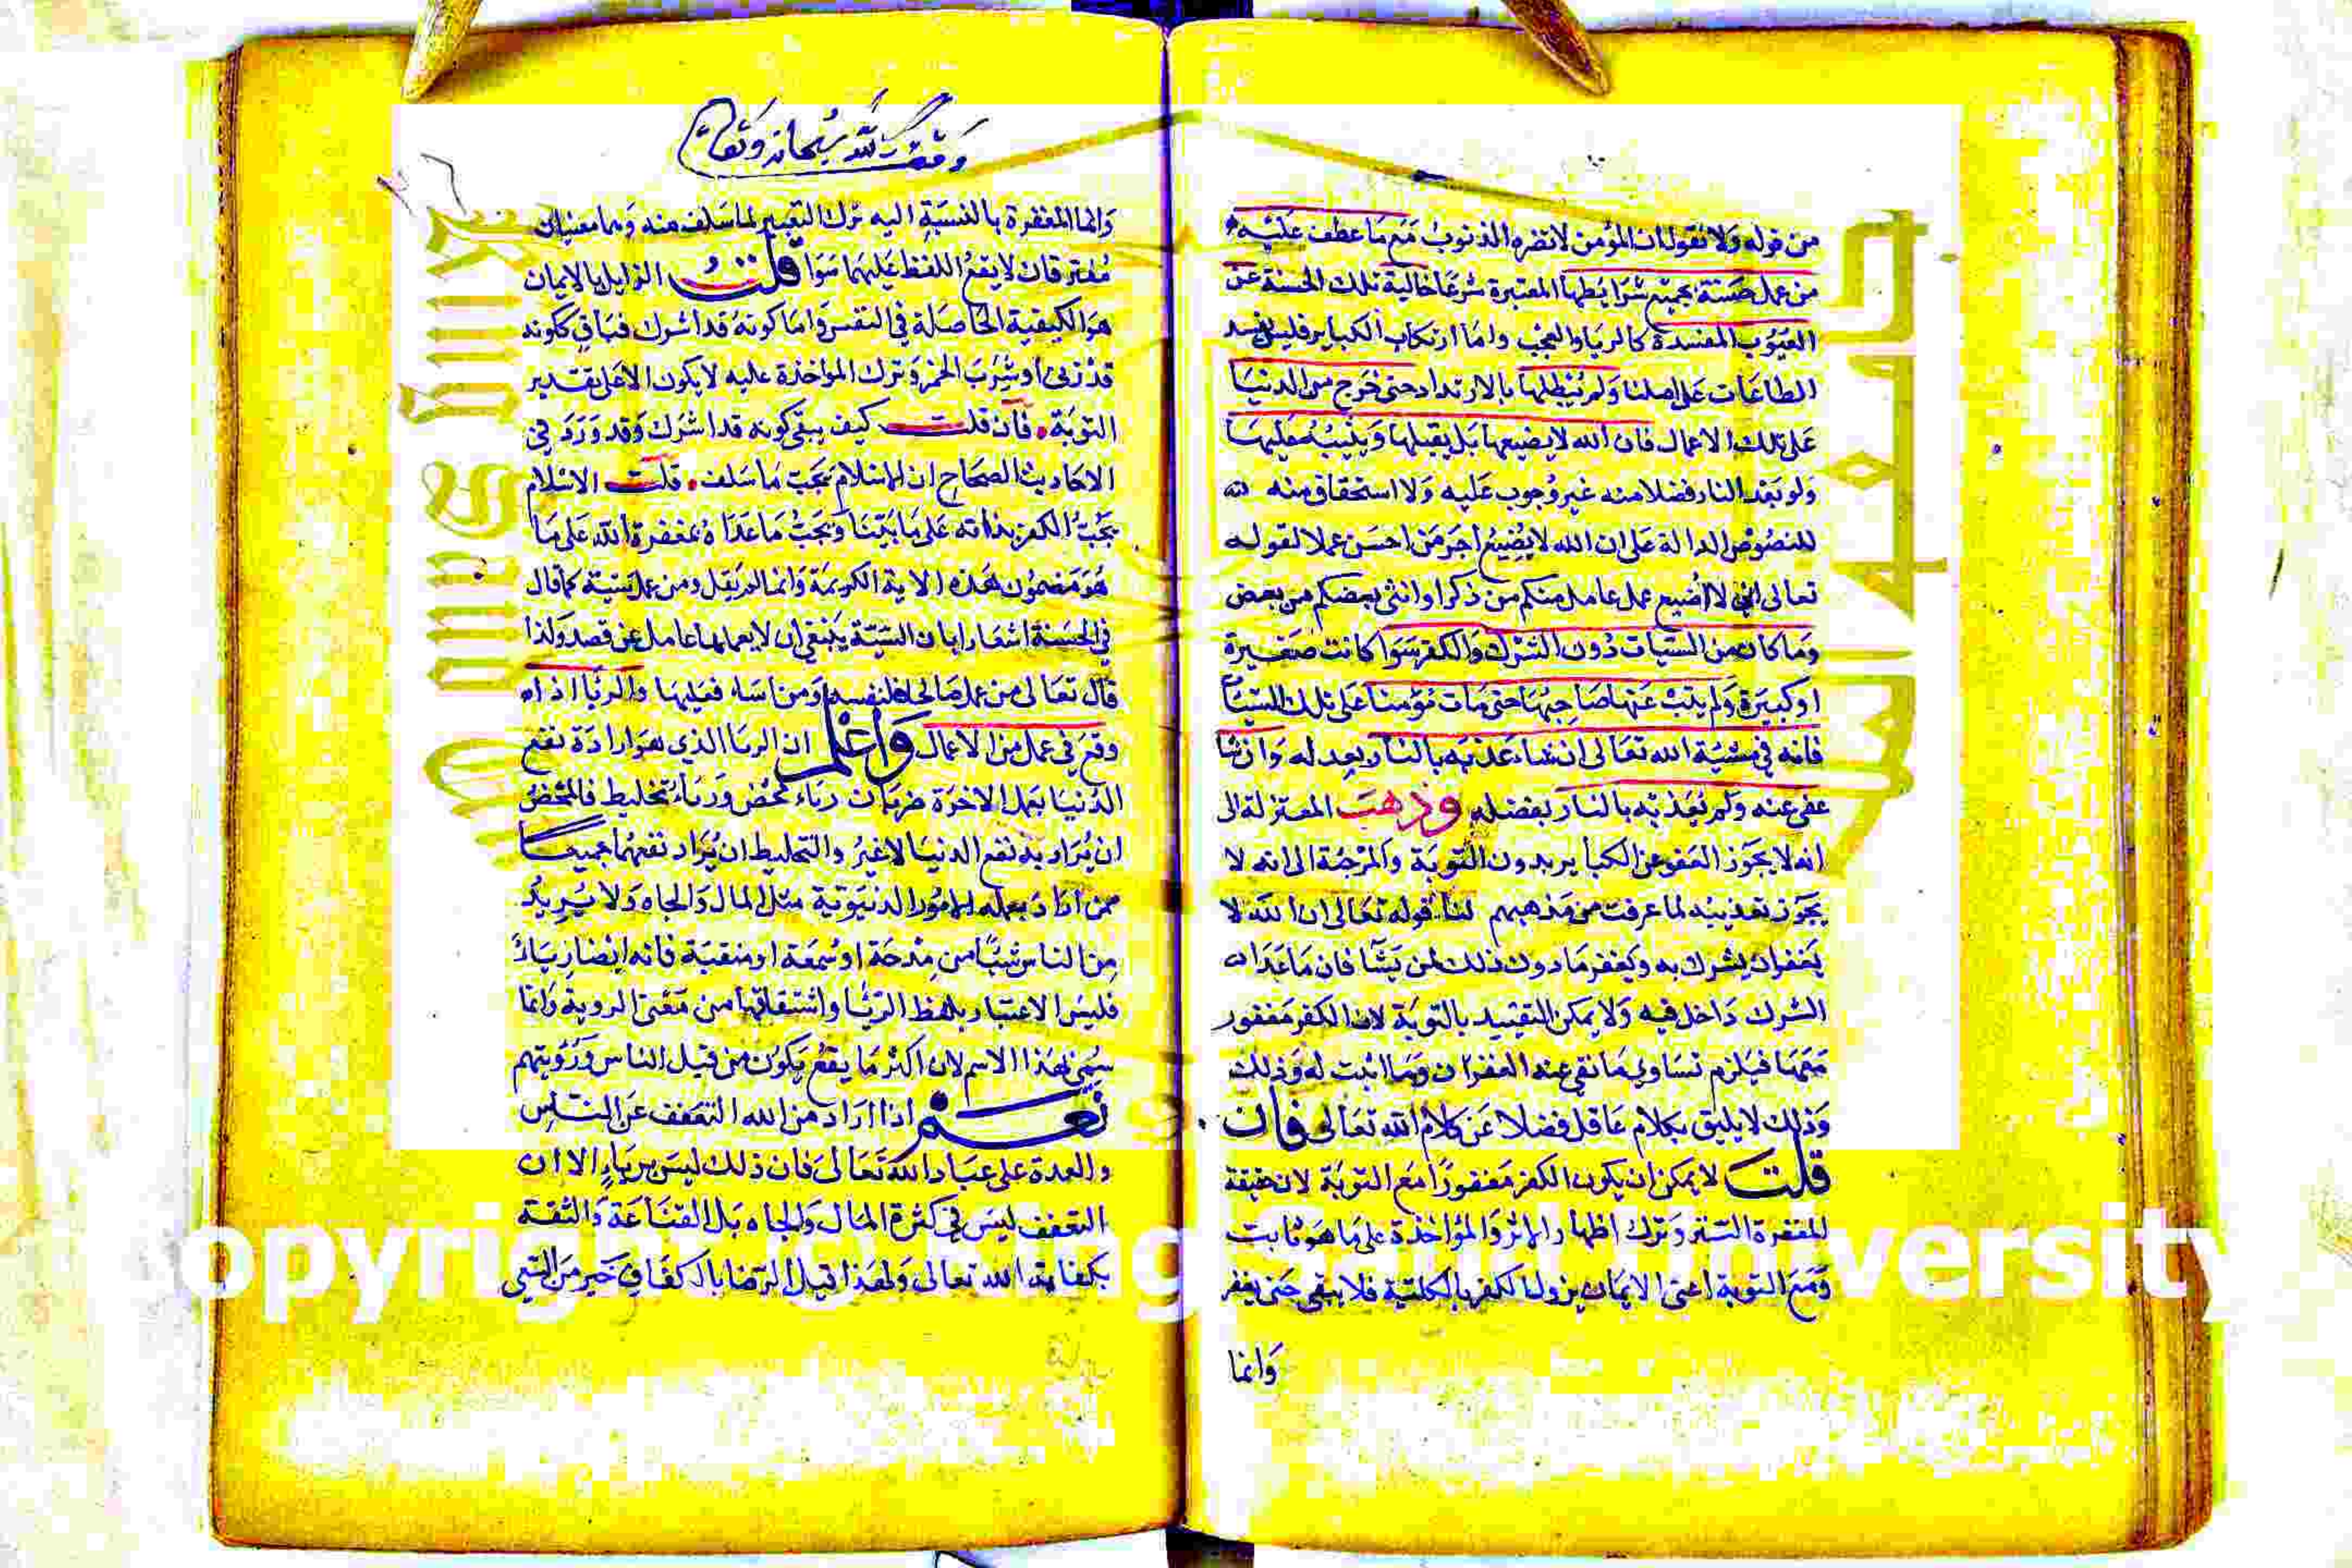 من قوله ولا نقول ان المؤمن لا تضره الذنوب مع ما عطف عليه
من عمل حسنة بجميع شرايطها المعتبرة شرعا خالية تلك الحسنة عن
العيوب المفسدة كالريا والعجب واما ارتكاب الكباير فليس يفسد
الطاعات على اصلنا ولم يبطلها بالارتداد حتى خرج من الدنيا
على تلك الاعمال فان الله لا يضيعها بل يقبلها ويثيبه عليها
ولو بعد النار فضلا منه غير وجوب عليه ولا استحقاق منه
للنصوص الدالة على ان الله لا يضيع اجر من احسن عملا لقوله
تعالى اني لا اضيع عمل عامل منكم من ذكر او انثى بعضكم من بعض
وما كان من السيات دون الشرك والكفر سوا كانت صغيرة
او كبيرة ولم يتب عنها صاحبها حتى مات مؤمنا على تلك السيا
فانه في مشية الله تعالى ان شاء عذبه بالنار بعدله وان شا
عفى عنه ولم يعذبه بالنار بفضله وذهبت المعتزلة الى
انه لا يجوز العفو عن الكباير بدون التوبة والمرجئة الى انه لا
يجوز تعذيبه لما عرفت من مذهبهم لنا قوله تعالى ان الله لا
يغفر ان يشرك به ويغفر ما دون ذلك لمن يشا فان ما عدا
الشرك داخل فيه ولا يمكن التقييد بالتوبة لان الكفر مغفور
معها فيلزم تساوي ما نفي عنه الغفران وما اثبت له وذلك
وذلك لا يليق بكلام عاقل فضلا عن كلام الله تعالى فان
قلت لا يمكن ان يكون الكفر مغفورا مع التوبة لان حقيقة
المغفرة الستر وترك اظهار الاثر والمؤاخذة على ما هو ثابت
ومع التوبة اعنى الايمان يزول الكفر بالكلية فلا يبقى حتى يغفر
وانما
وقف لله سبحانه وتعالى
وانما المغفرة بالنسبة اليه ترك التعيير لما سلف منه وهما معنيان
مفترقان لا يقع اللفظ عليهما سوا قلت الزايل بالايمان
هو الكيفية الحاصلة في النفس واما كونه قد اشرك فباق ككونه
قد زنى او شرب الخمر وترك المؤاخذة عليه لا يكون الا على تقدير
التوبة فان قلت كيف يبقى كونه قد اشرك وقد ورد في
الاحاديث الصحاح ان الاسلام يجب ما سلف قلت الاسلام
يجب الكفر بذاته على ما بينا ويجب ما عداه بمغفرة الله على ما
هو مضمون هذه الاية الكريمة وانما لم يقل ومن عمل سيئة كما قال
في الحسنة اشعارا بان السيئة ينبغي ان لا يعملها عامل عن قصد ولذا
قال تعالى من عمل صالحا فلنفسه ومن اساء فعليها والريا اذا
وقع في عمل من الاعمال واعلم ان الريا الذي هو ارادة نفع
الدنيا بعمل الاخرة ضربان رياء محض ورياء تخليط فالمحض
ان يراد به نفع الدنيا لا غير والتخليط ان يراد نفعهما جميعا
فمن اراد بعمله الامور الدنيوية مثل المال والجاه ولا يريد
من الناس شيئا من مدحة او سمعة او منقبة فانه ايضا رياء
فليس الاعتبار بلفظ الريا واشتقاقها من معنى الروية وانما
سمي بهذا الاسم لان اكثر ما يقع يكون من قبل الناس ورؤيتهم
نعم اذا اراد من الله التعفف عن الناس
والعدة على عباد الله تعالى فان ذلك ليس برياء الا ان
التعفف ليس في كثرة المال والجاه بل القناعة والثقة
بكفاية الله تعالى ولهذا قيل الرضا بالكفاف خير من السعي